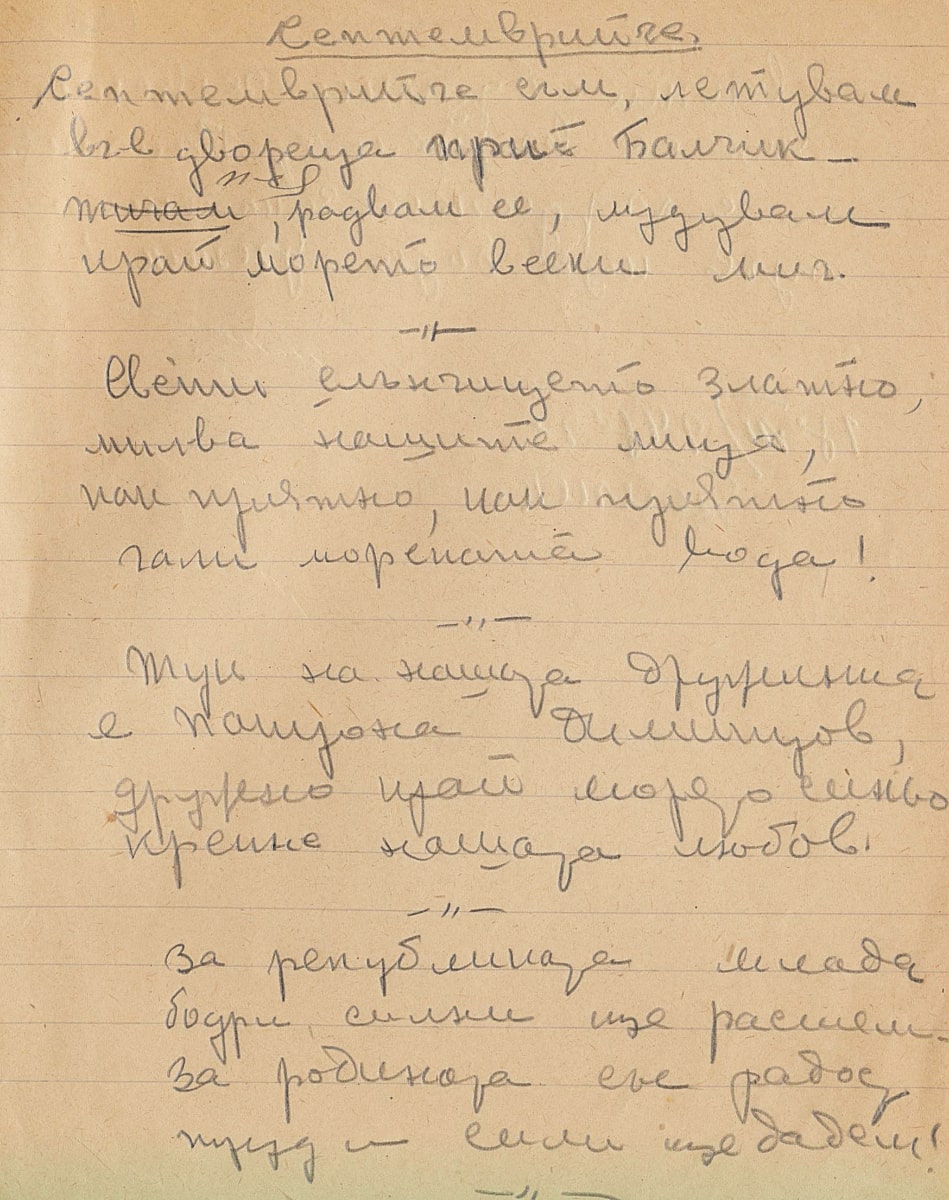 Септемврийче.
Септемврийче съм, летувам
във двореца край Балчик –
пея
тичам, радвам се, лудувам
край морето всеки миг.
–"–
Свети слънчицето златно,
милва нашите лица,
как приятно, как приятно
гали морската вода!
–"–
Тук на нашата дружинка
е патрона Димитров,
дружно край морето синьо
крепне нашата любов.
–"–
За републиката млада
бодри, силни ще растем –
за родината със радост
труд и сили ще дадем!
–"–